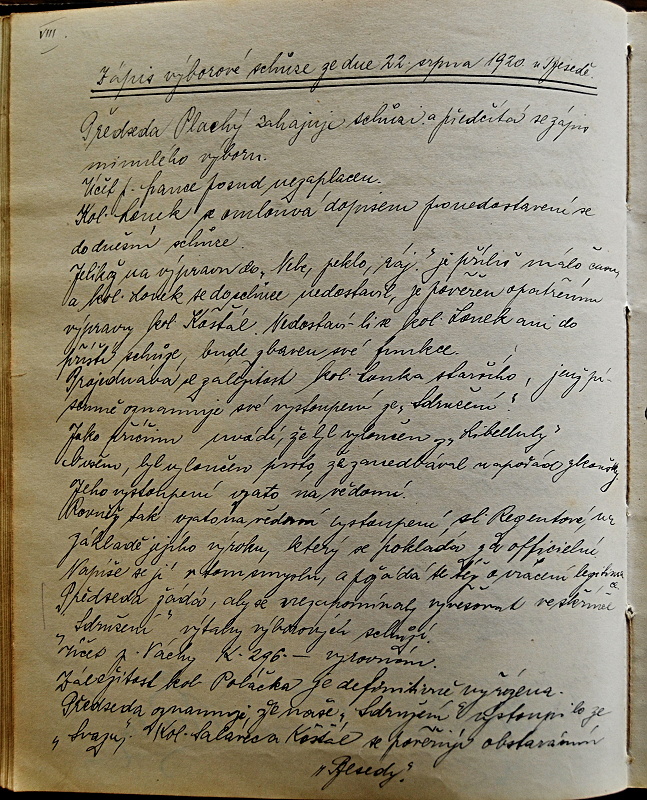 VIII.
Zápis výborové schůze ze dne 22. srpna 1920 v Besedě.
Předseda Plachý zahajuje schůzi a předčítá se zápis
minulého výboru.
Účet p. posud nezaplacen.
Kol. Lonek se omlouvá dopisem pro nedostavení se
do dnešní schůze.
Jelikož na výpravu do „Nebe, peklo, ráj." je příliš málo času,
a kol. Lonek se do schůze nedostavil, je pověřen opatřením
výpravy kol. Košťál. Nedostaví-li se kol. Lonek ani do
příští schůze, bude zbaven své funkce.
Projednává se záležitost kol. Lonka staršího, jenž pí-
semně oznamuje své vystoupení ze „Sdružení".
Jako příčinu uvádí, že byl vyloučen z „Libelluly"
Ovšem, byl vyloučen proto, že zanedbával napořád zkoušky.
Jeho vystoupení vzato na vědomí.
Rovněž tak vzato na vědomí vystoupení sl. Regentové, na
základě jejího výroku, který se pokládá za officielní.
Napíše se jí v tom smyslu, a požádá se též o vrácení legitimace
Předseda žádá, aby se nezapomínaly vyvěsovat ve skřínce
„Sdružení" výtahy výborových schůzí.
Účet p. Váchy K. 296.— vyrovnán.
Záležitost kol. Poláčka je definitivně vyřízena.
Předseda oznamuje, že naše „Sdružení" vystoupilo ze
„Svazu". Kol. a Košťál se pověřují obstaráním
„Besedy."